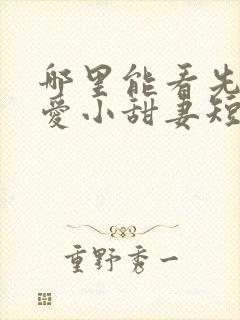 哪里能看先
爱小甜妻短
重野秀一